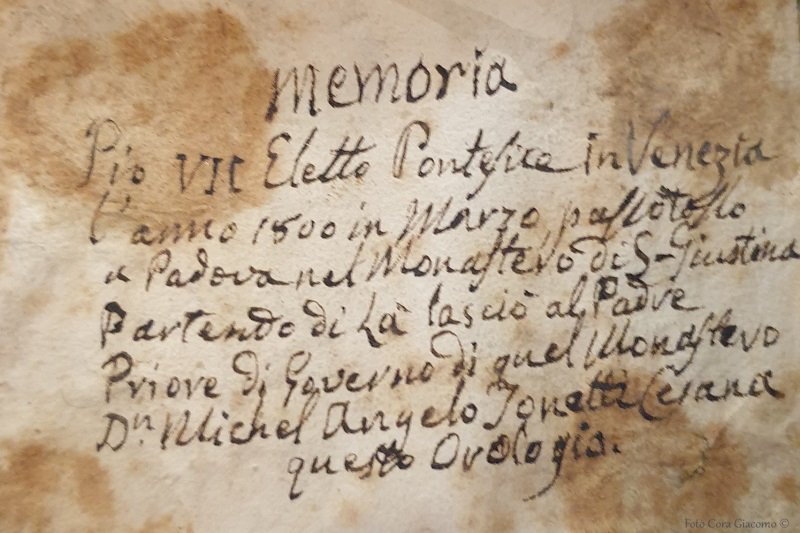 Memoria
Pio VII Eletto Pontefice in Venezia
l'anno 1800 in Marzo, passò tosto
a Padova nel Monastero di S. Giustina
Partendo di Là lasciò al Padre
Priore di Governo di quel Monastero
Dn Michel Angelo Tonetti Cesana
questo Orologio.
Foto Cora Giacomo ©